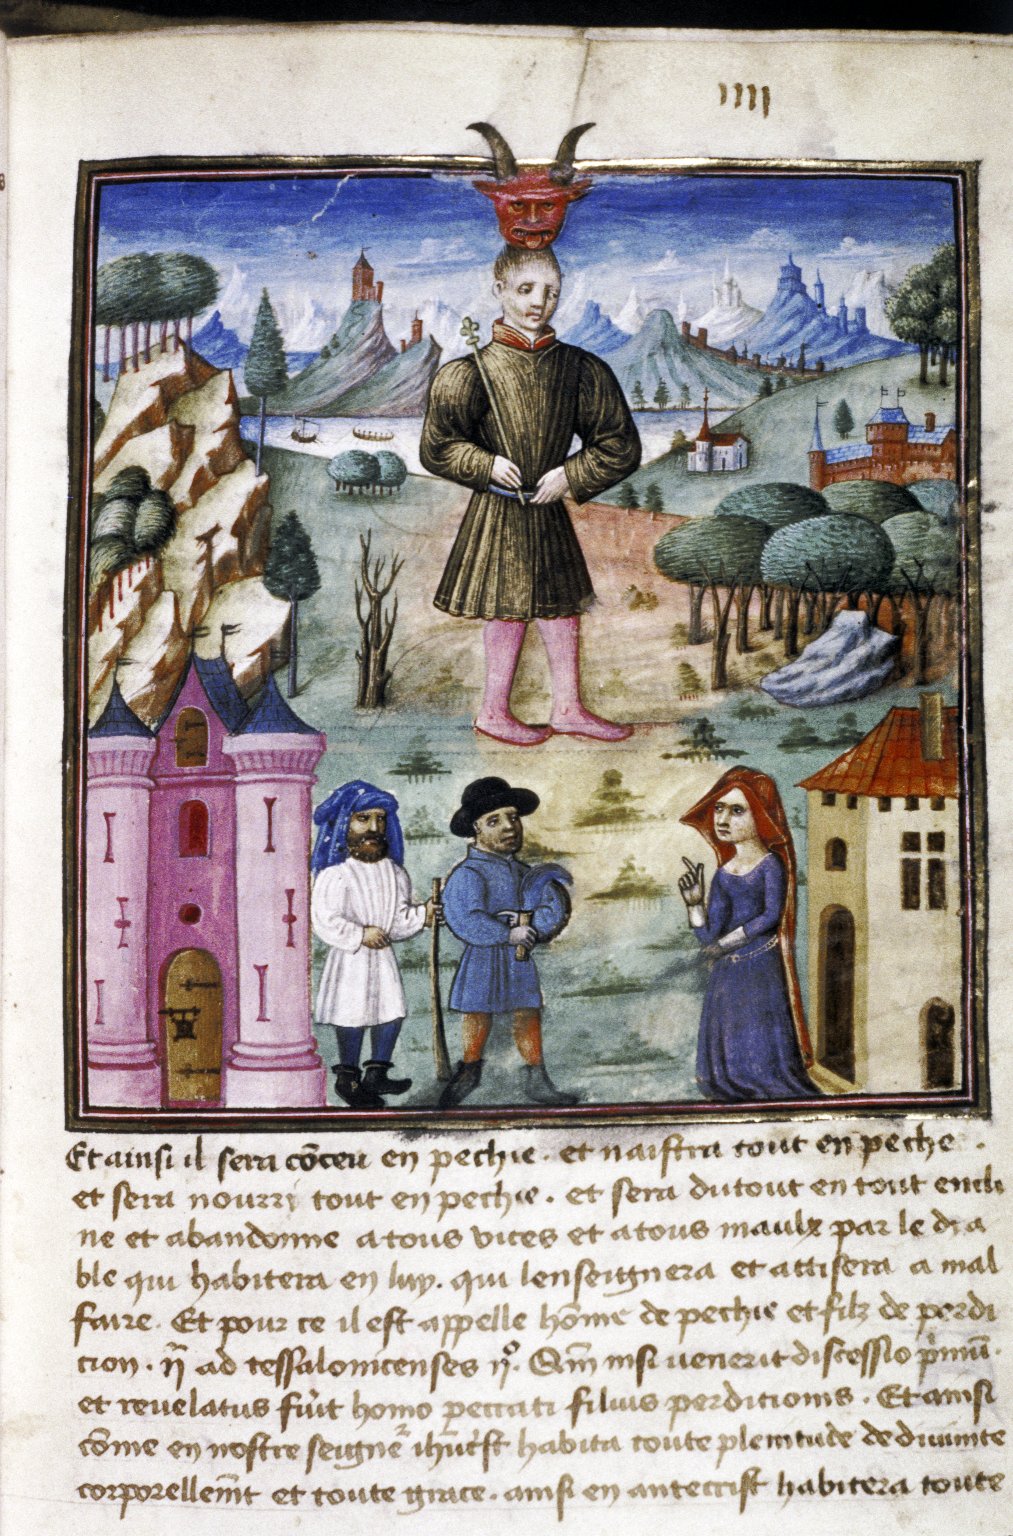 IIII
Et ainsi il sera cōceu en pechie. et naistra tout en peche.
et sera nourri tout en pechie. et sera du tout en tout encli
ne et abandonne a tous vices et a tous maulz par le dia
ble qui habitera en luy. qui lenseignera et attisera a mal
faire. Et pour ce il est appelle hōme de pechie et filz de perdi
cion. ad tessalonicenses ijº. Qm̄ nisi uenerit discessio p̄mū.
et reuelatus fu̓it homo peccati filius perditionis. Et ainsi
cōme en nostre seigne᷑ ih̄ucrist habita toute plenitude de diuinite
corporellem̄t et toute grace. ainsi en antecrist habitera toute